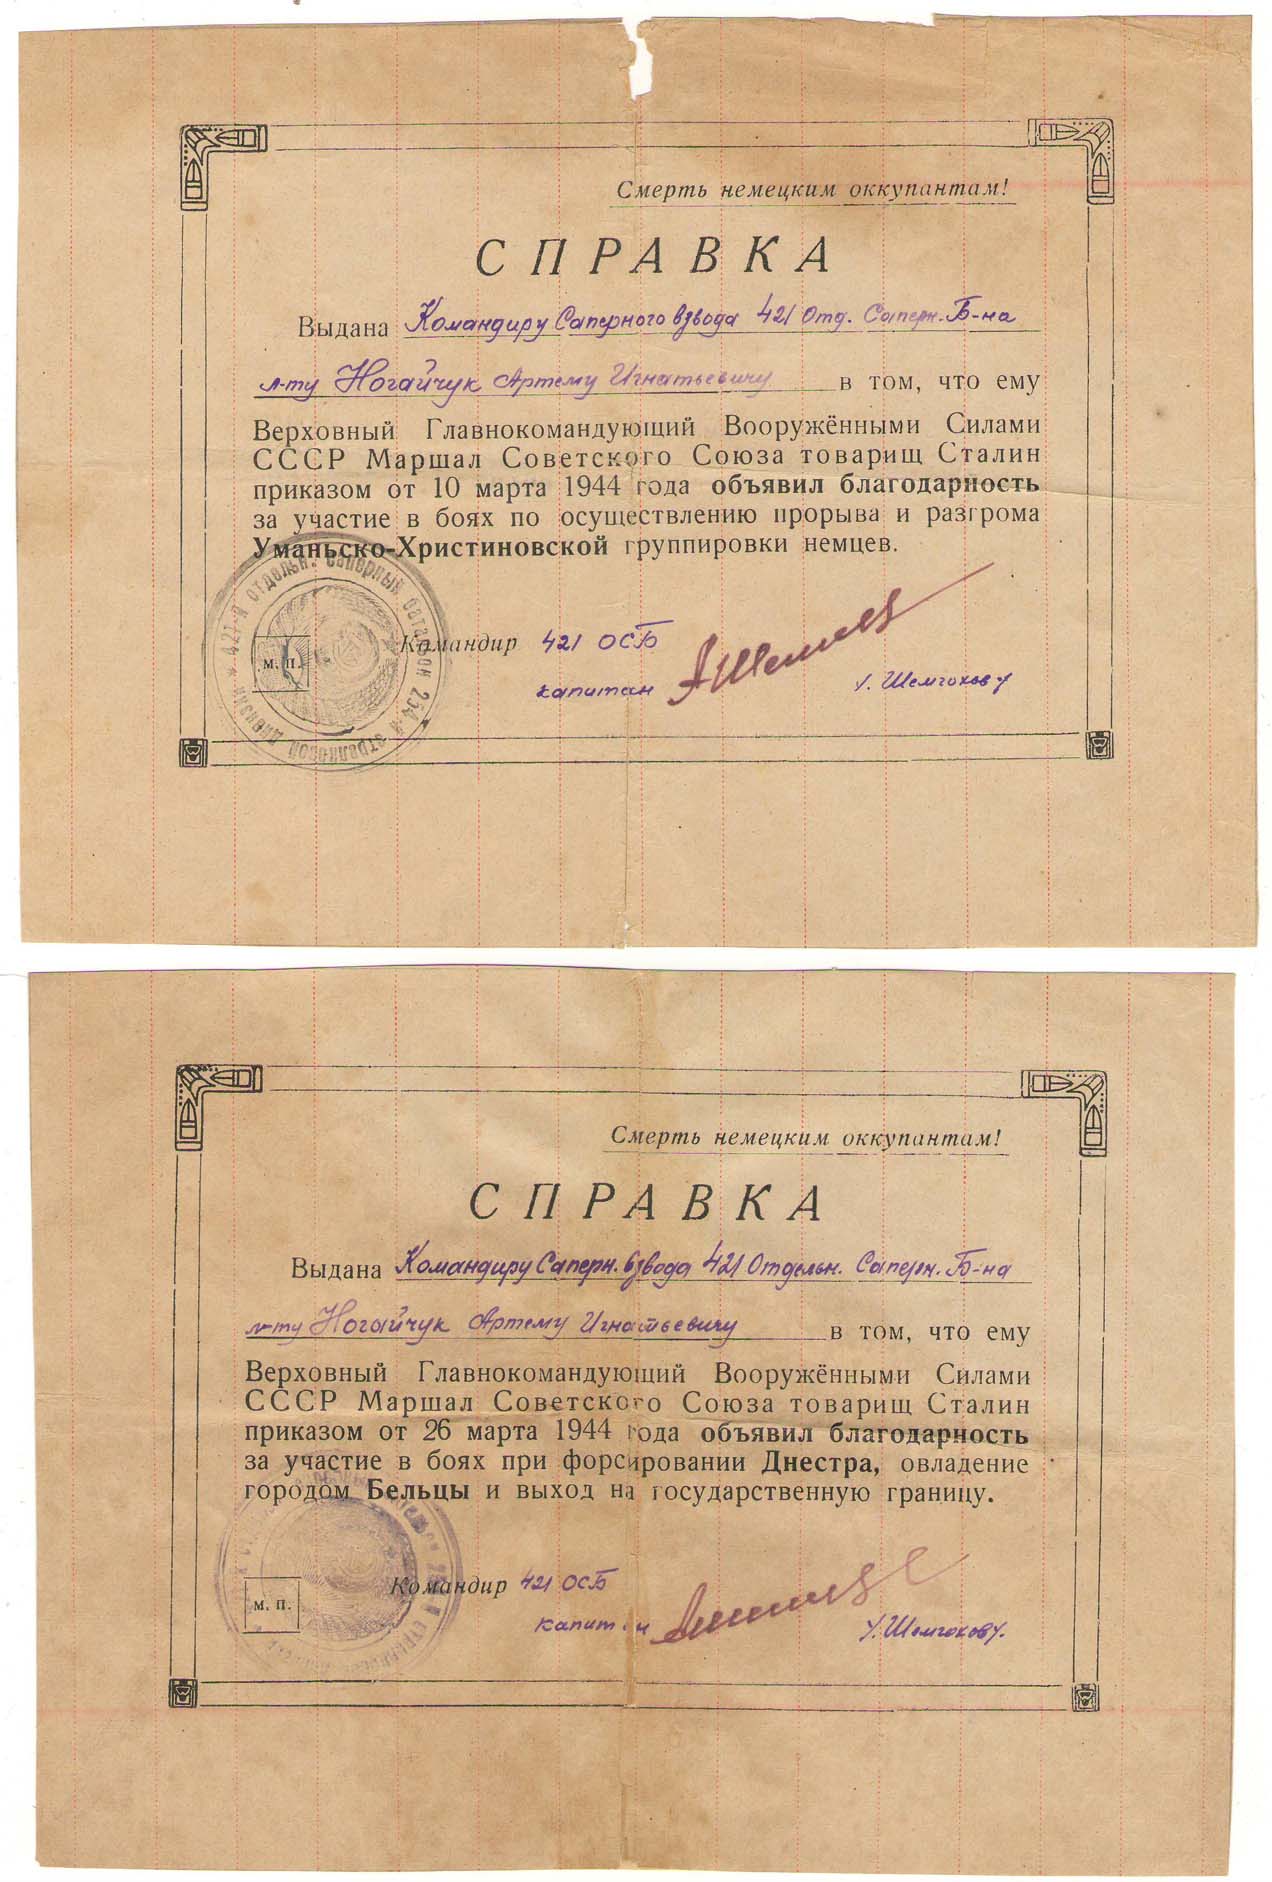 Смерть немецким оккупантам!
СПРАВКА
Выдана Командиру Саперного взвода 421 Отд. Саперн. Б-на
л-ту Ногайчук Артему Игнатьевичу в том, что ему
Верховный Главнокомандующий Вооружёнными Силами
СССР Маршал Советского Союза товарищ Сталин
приказом от 10 марта 1944 года объявил благодарность
за участие в боях по осуществлению прорыва и разгрома
Уманьско-Христиновской группировки немцев.
421-й отдельн. саперный батальон 254-й стрелковой дивизии
м. п.
Командир 421 ОСБ
капитан
Смерть немецким оккупантам!
СПРАВКА
Выдана Командиру Саперн. взвода 421 Отдельн. Саперн. Б-на
л-ту Ногайчук Артему Игнатьевичу в том, что ему
Верховный Главнокомандующий Вооружёнными Силами
СССР Маршал Советского Союза товарищ Сталин
приказом от 26 марта 1944 года объявил благодарность
за участие в боях при форсировании Днестра, овладение
городом Бельцы и выход на государственную границу.
м. п.
Командир 421 ОСБ
капитан